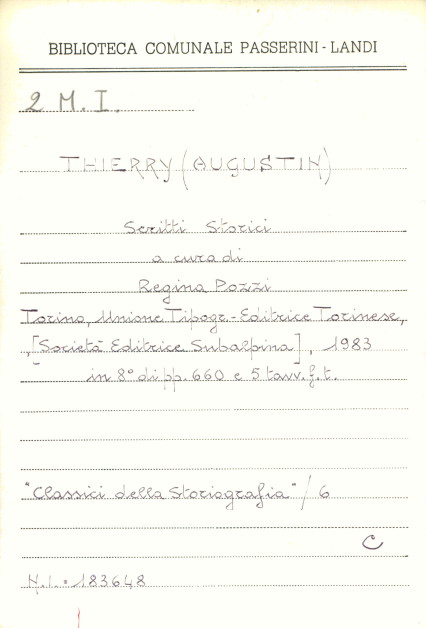 BIBLIOTECA COMUNALE PASSERINI - LANDI
2 M. I.
THIERRY (AUGUSTIN)
Scritti Storici
a cura di
Regina Pozzi
Torino, Unione Tipogr.-Editrice Torinese,
[Società Editrice Subalpina], 1983
in 8° di pp. 660 e 5 tavv. f. t.
"Classici della Storiografia" / 6
C
N.I. = 183648